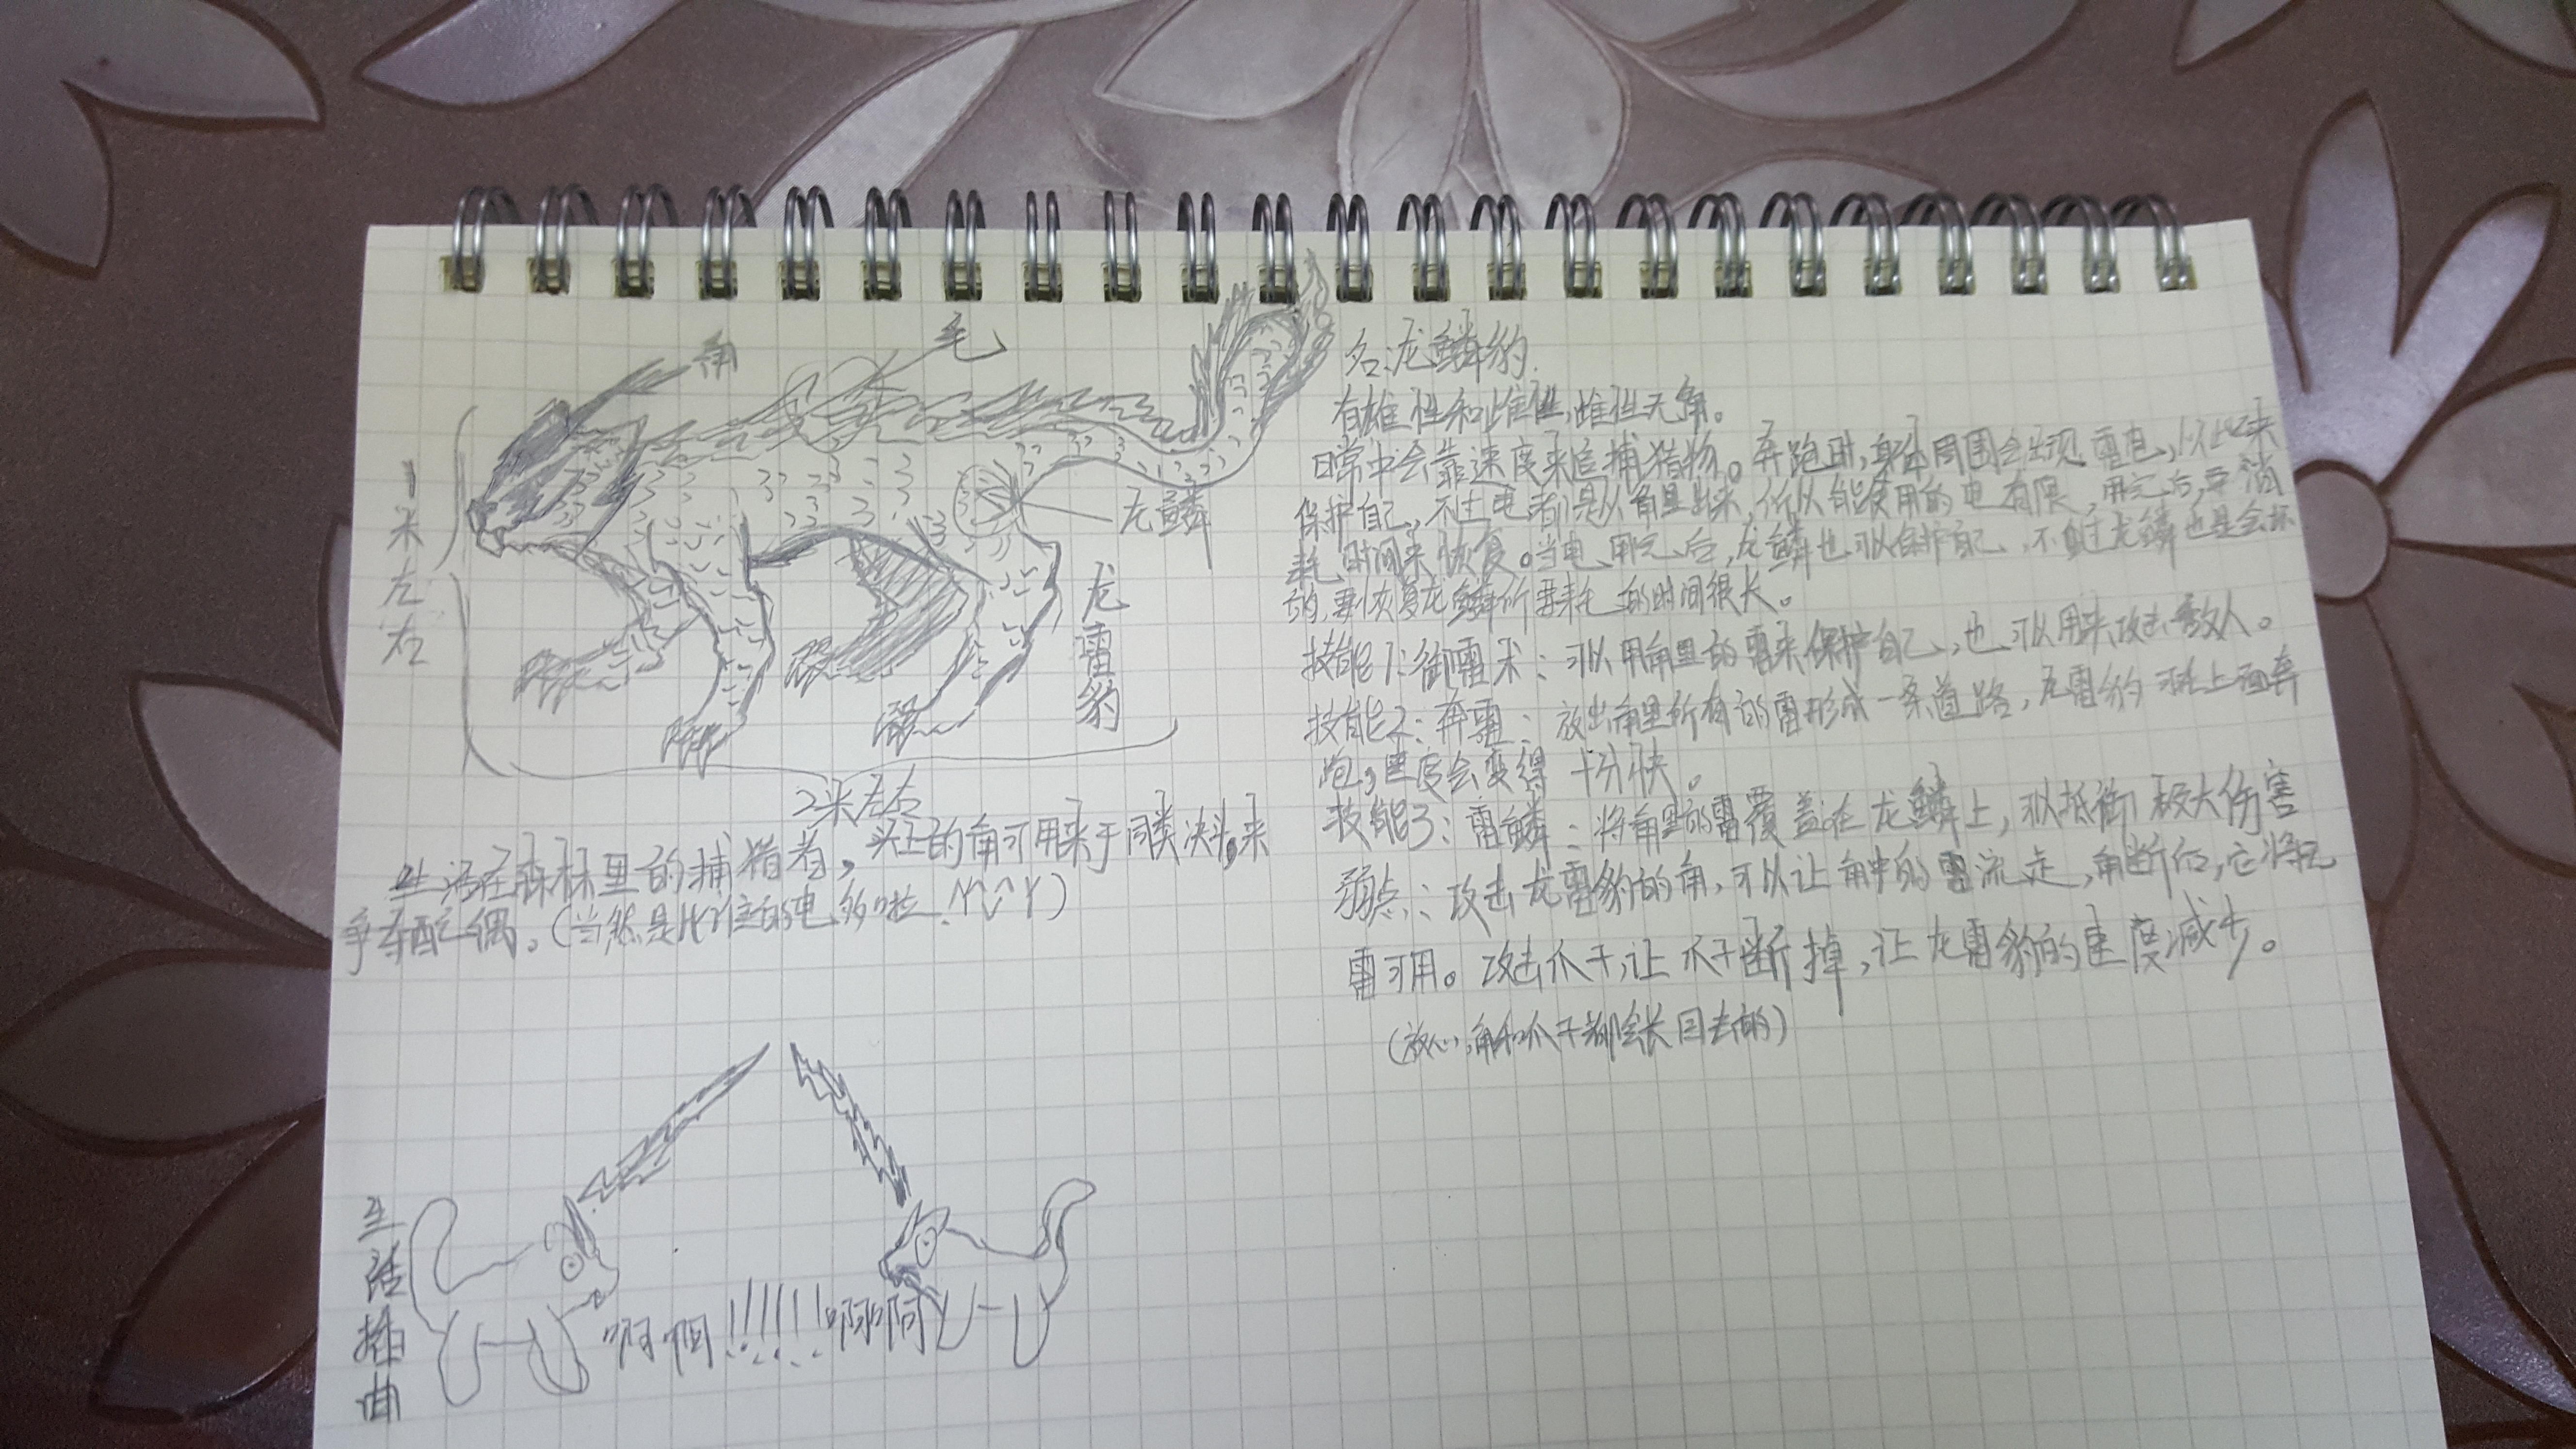 角
毛
1米左右
龙鳞
龙雷豹
2米左右
生活在森林里的捕猎者，头上的角可用来于同类决斗，来
争夺配偶。（当然是比谁的电多啦！Y^Y）
生活插曲
啊啊！！！！！！啊啊
名：龙鳞豹.
有雄性和雌性，雌性无角。
日常中会靠速度来追捕猎物。奔跑时，身体周围会出现雷电，以此来
保护自己，不过电都是从角里出来，所以能使用的电有限，用完后，要消
耗时间来恢复。当电用完后，龙鳞也可以保护自己，不过龙鳞也是会坏
的，要恢复龙鳞所要耗的时间很长。
技能1：御雷术：可以用角里的雷来保护自己，也可以用来攻击敌人。
技能2：奔雷：放出角里所有的雷形成一条道路，龙雷豹可在上面奔
跑，速度会变得十分快。
技能3：雷鳞：将角里的雷覆盖在龙鳞上，可以抵御极大伤害
弱点：攻击龙雷豹的角，可以让角中的雷流走，角断后，它将无
雷可用。攻击爪子，让爪子断掉，让龙雷豹的速度减少。
（放心，角和爪子都会长回去的）